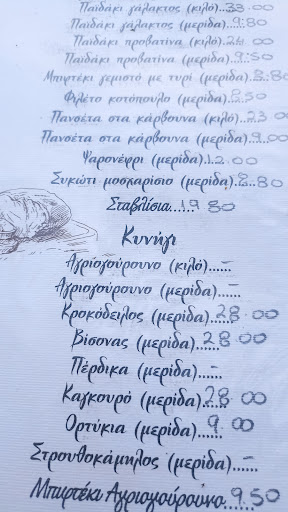 Παϊδάκι γάλακτος (κιλό)..33.00
Παϊδάκι γάλακτος (μερίδα).9.80
Παϊδάκι προβατίνα (κιλό).26.00
Παϊδάκι προβατίνα (μερίδα).9.50
Μπιφτέκι γεμιστό με τυρί (μερίδα).8.80
Φιλέτο κοτόπουλο (μερίδα).8.50
Πανσέτα στα κάρβουνα (κιλό).23.00
Πανσέτα στα κάρβουνα (μερίδα).9.00
Ψαρονέφρι (μερίδα).12.00
Συκώτι μοσχαρίσιο (μερίδα).8.80
Σταβλίσια......19.80
Κυνήγι
Αγριογούρουνο (κιλό)......–
Αγριογούρουνο (μερίδα)......–
Κροκόδειλος (μερίδα).28.00
Βίσονας (μερίδα).28.00
Πέρδικα (μερίδα)......–
Καγκουρό (μερίδα).28.00
Ορτύκια (μερίδα)..9.00
Στρουθοκάμηλος (μερίδα)......–
Μπιφτέκι Αγριογούρουνο..9.50